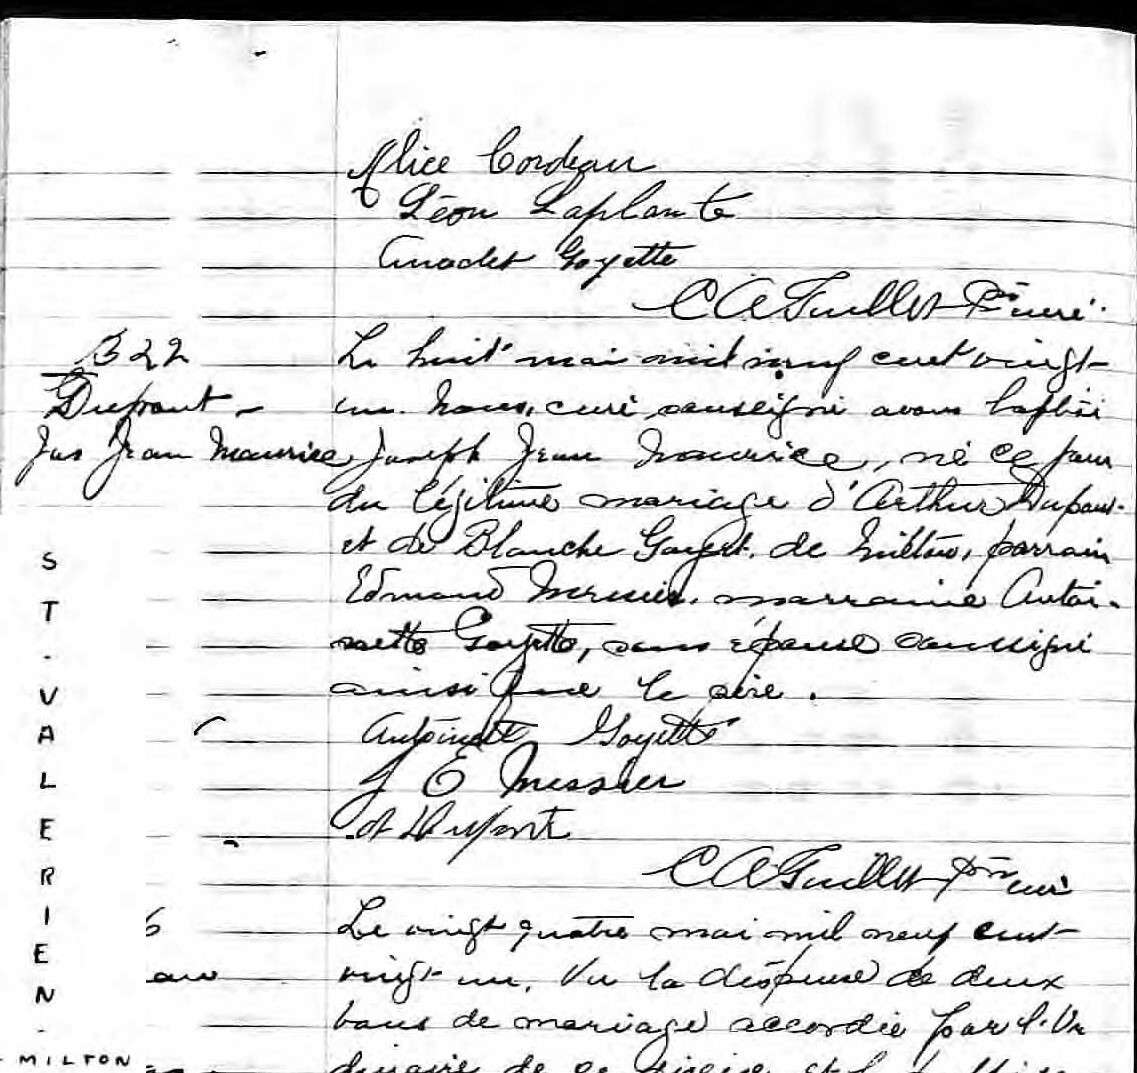 Alice Cordeau
Léon Laplante
Goyette
C A Guillet Ptre curé.
B 22
Dupont -
Jos Jean Maurice
Le huit mai mil neuf cent vingt-
un. Nous, curé soussigné avons baptisé
Joseph Jean Maurice, né ce jour
du légitime mariage d'Arthur Dupont
et de Blanche Goyett. de Milton, parrain
Edmond Messier, marraine Antoi-
nette Goyette, son épouse soussigné
ainsi que le père.
Antoinette Goyette
J E Messier
A Dupont
C A Guillet Ptre curé
Le vingt quatre mai mil neuf cent
vingt-un. Vu la dispense de deux
bans de mariage accordée par l'Or
dinaire de ce
eau
ST. VALERIEN.
MILTON